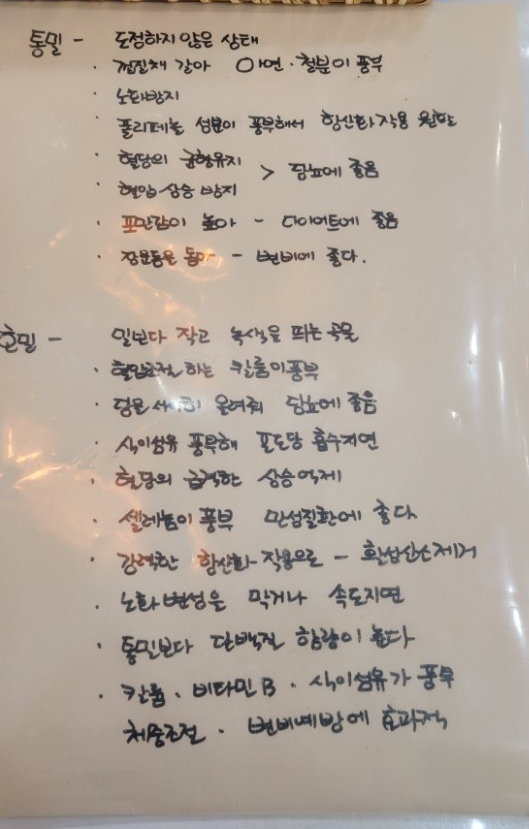 통밀 - 도정하지 않은 상태
· 껍질채 갈아 아연 · 철분이 풍부
· 노화방지
· 폴리페놀 성분이 풍부해서 항산화작용 원활
· 혈당의 균형유지
> 당뇨에 좋음
· 혈압 상승 방지
· 포만감이 높아 - 다이어트에 좋음
· 장운동을 도와 - 변비에 좋다.
호밀 - 밀보다 작고 녹색을 띄는 곡물
· 혈압조절 하는 칼륨이 풍부
· 당을 서서히 올려줘 당뇨에 좋음
· 식이섬유 풍부해 포도당 흡수지연
· 혈당의 급격한 상승억제
· 셀레늄이 풍부 만성질환에 좋다
· 강력한 항산화 작용으로 - 활성산소제거
· 노화변성을 막거나 속도지연
· 통밀보다 단백질 함량이 높다
· 칼륨 · 비타민B · 식이섬유가 풍부
체중조절 · 변비예방에 효과적